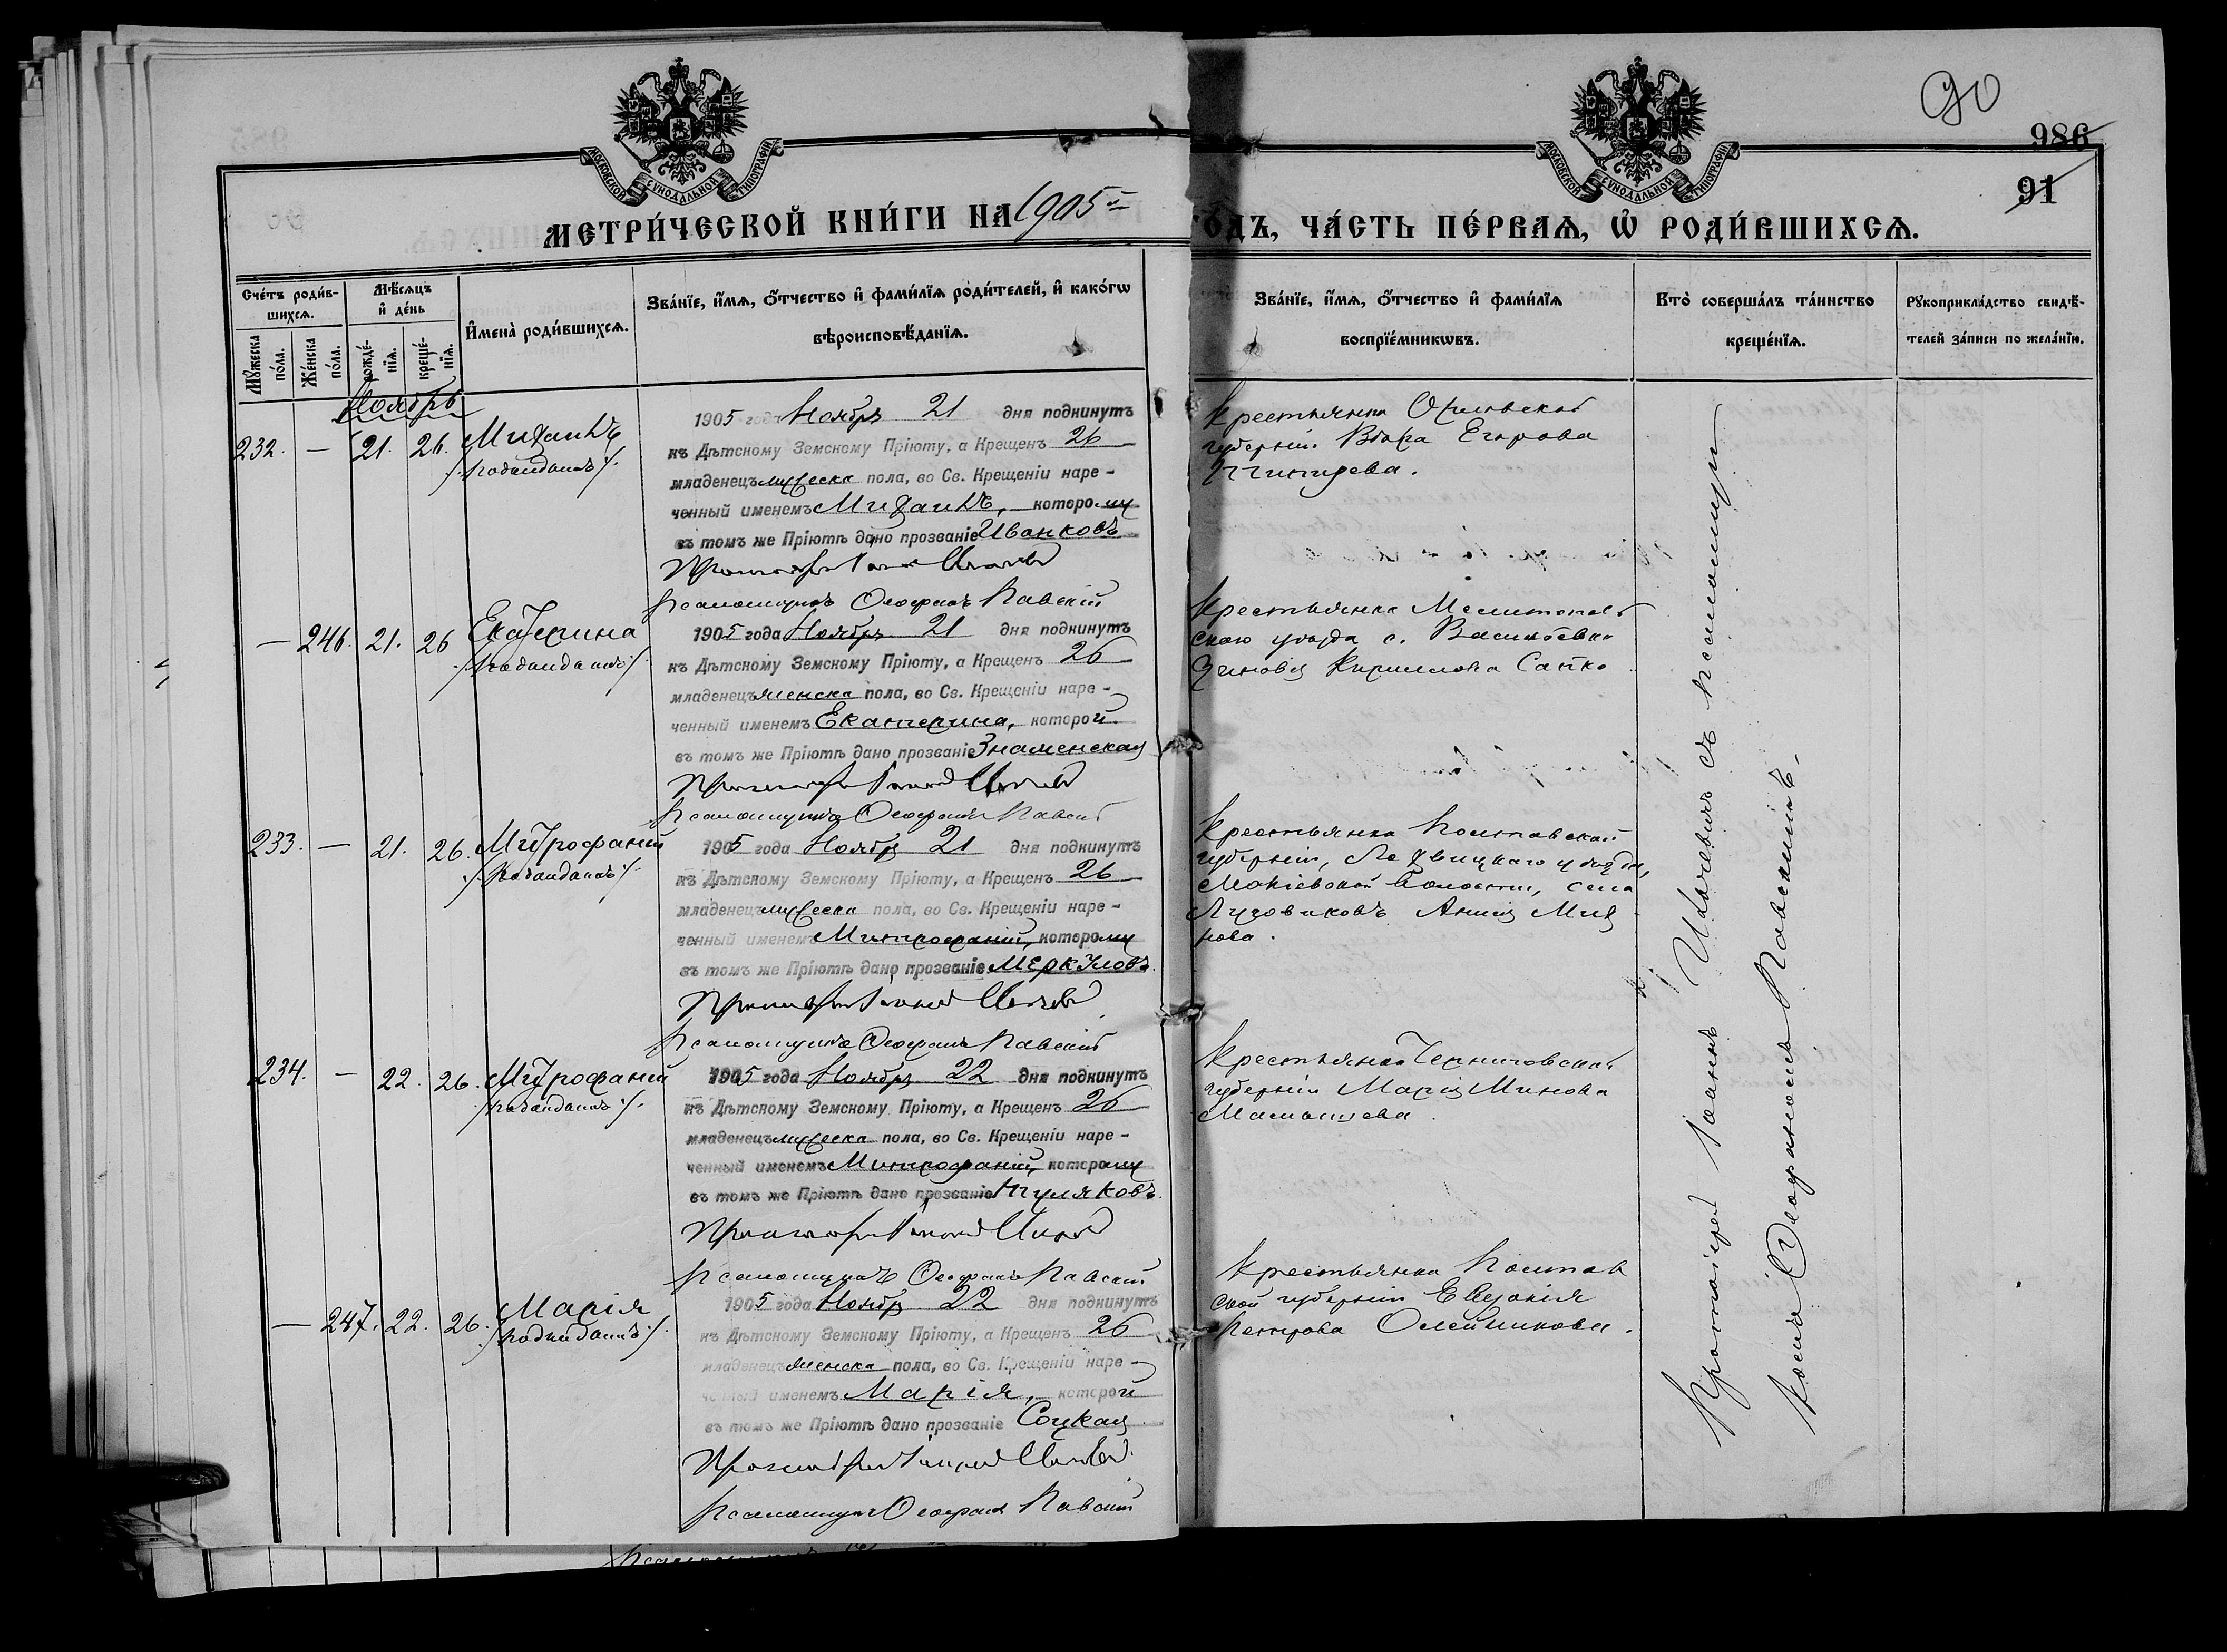 90
986
91
МОСКОВСКОЙ СУНОДАЛЬНОЙ ТИПОГРАФІИ
МОСКОВСКОЙ СУНОДАЛЬНОЙ ТИПОГРАФІИ
МЕТРИ́ЧЕСКОЙ КНИ́ГИ НА 1905 ГО́ДЪ, ЧА́СТЬ ПЕ́РВАѦ, Ѡ҆ РОДИ́ВШИХСѦ.
Сче́тъ роди́в-
шихсѧ.
Мꙋ́жеска по́ла.
Же́нска по́ла.
Мѣ́сѧцъ
и҆ де́нь
рожде́-
нїѧ.
креще́-
нїѧ.
И҆мена̀ роди́вшихсѧ.
Зва́нїе, и҆́мѧ, ѻ҆́тчество и҆ фами́лїѧ роди́телей, и҆ како́гѡ
вѣроисповѣ́данїѧ.
Зва́нїе, и҆́мѧ, ѻ҆́тчество и҆ фами́лїѧ
воспрїе́мникѡвъ.
Кто̀ соверша́лъ та́инство
креще́нїѧ.
Рꙋкоприкла́дство свидѣ́-
телей за́писи по жела́нїю.
Ноябрь
232. — 21. 26. Михаилъ
/Подкидышъ/.
1905 года Ноября 21 дня подкинутъ
къ Дѣтскому Земскому Пріюту, а Крещенъ 26
младенецъ мужеска пола, во Св. Крещеніи наре-
ченный именемъ Михаилъ, которому
въ томъ же Пріютѣ дано прозваніе Иванковъ
Протоіерей Іоаннъ
Псаломщикъ Ѳеофилъ Павскій
Крестьянка Орловской
губерніи Вѣра Егорова
— 246. 21. 26 Екатерина
/Подкидышъ/.
1905 года Ноября 21 дня подкинутъ
къ Дѣтскому Земскому Пріюту, а Крещенъ 26
младенецъ женска пола, во Св. Крещеніи наре-
ченный именемъ Екатерина, которой
въ томъ же Пріютѣ дано прозваніе Знаменская
Протоіерей Іоаннъ
Псаломщикъ Ѳеофилъ Павскій
Крестьянка Мелитополь
скаго уѣзда с. Васильевки
Зиновія Кириллова Сапко
233. — 21. 26. Митрофаній
/Подкидышъ/.
1905 года Ноября 21 дня подкинутъ
къ Дѣтскому Земскому Пріюту, а Крещенъ 26
младенецъ мужеска пола, во Св. Крещеніи наре-
ченный именемъ Митрофаній, которому
въ томъ же Пріютѣ дано прозваніе Меркуловъ.
Протоіерей Іоаннъ
Псаломщикъ Ѳеофилъ Павскій
Крестьянка Полтавской
губерніи, Лохвицкаго уѣзда,
волости, села
234. — 22. 26. Митрофаній
/Подкидышъ/.
1905 года Ноября 22 дня подкинутъ
къ Дѣтскому Земскому Пріюту, а Крещенъ 26
младенецъ мужеска пола, во Св. Крещеніи наре-
ченный именемъ Митрофаній, которому
въ томъ же Пріютѣ дано прозваніе
Протоіерей Іоаннъ
Псаломщикъ Ѳеофилъ Павскій
Крестьянка Черниговской
губерніи Марія Минова
— 247. 22. 26. Марія
/Подкидышъ/.
1905 года Ноября 22 дня подкинутъ
къ Дѣтскому Земскому Пріюту, а Крещенъ 26
младенецъ женска пола, во Св. Крещеніи наре-
ченный именемъ Марія, которой
въ томъ же Пріютѣ дано прозваніе Соцкая
Протоіерей Іоаннъ
Псаломщикъ Ѳеофилъ Павскій
Крестьянка Полтав
ской губерніи Евдокія
Петрова Олейникова.
Протоіерей Іоаннъ съ псаломщи
комъ Ѳеофиломъ Павскимъ.